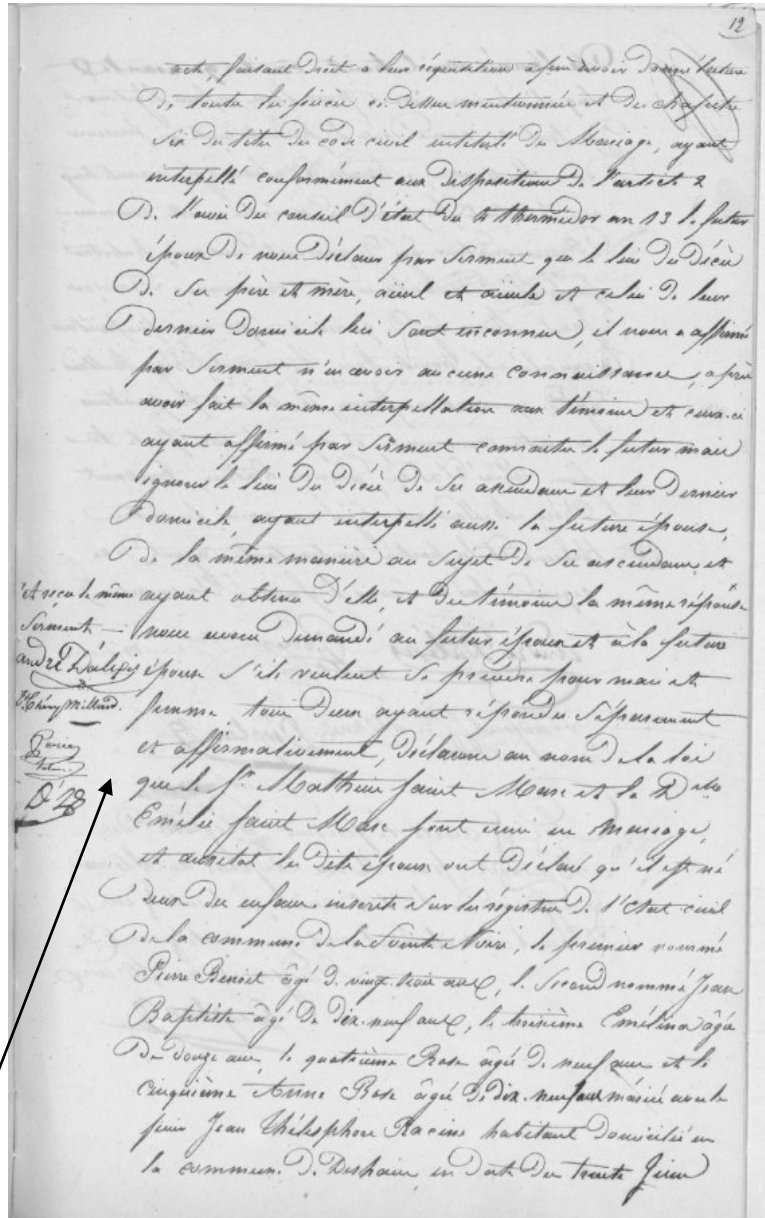 12
acte, faisant droit a leur réquisition après avoir donné lecture
De toutes les pièces ci dessus mentionnées et du chapitre
six du titre du code civil intitulé du Mariage, ayant
interpellé conformément aux dispositions de l'article 2
De l'avis du conseil d'état du 4 thermidor an 13 le futur
époux De nous Déclarer par Serment que le lieu du Décès
De Ses père et mère, aïeul et aïeule et celui De leur
Dernier Domicile lui Sont inconnus, il nous a affirmé
par Serment n'en avoir aucune connaissance, après
avoir fait la même interpellation aux témoins et ceux-ci
ayant affirmé par Serment connaitre le futur mais
ignorer le lieu Du Décès De Ses ascendans et leur Dernier
Domicile, ayant interpellé aussi la future épouse,
De la même manière au Sujet De Ses ascendans, et
ayant obtenu D'elle, et Des témoins la même réponse
nous avons Demandé au futur époux et à la future
épouse s'ils veulent Se prendre pour mari et
femme tous Deux ayant répondu Séparement
et affirmativement, Déclarons au nom De la loi
que le Sr. Mathieu Saint Marc et la Dlle
Emélie Saint Marc Sont unis en Mariage,
et aussitot les Dits époux ont Déclaré qu'il est né
D'eux Des enfans inscrits Sur les régistres De l'Etat civil
De la commune De la Pointe Noire, le premier nommé
Pierre Benoit âgé De vingt trois ans, le Second nommé Jean
Baptiste âgé De Dix-neuf ans, le troisième Emélina âgée
De Douze ans, le quatrième Rose âgée De neuf ans et le
cinquième Anne Rose âgée De Dix-neuf ans mariée avec le
sieur Jean Thélesphore Racine habitant Domicilié en
la commune De Deshaies, en Date du trente Juin
et reçu le même
Serment
André Dalexis
Chéry Millard